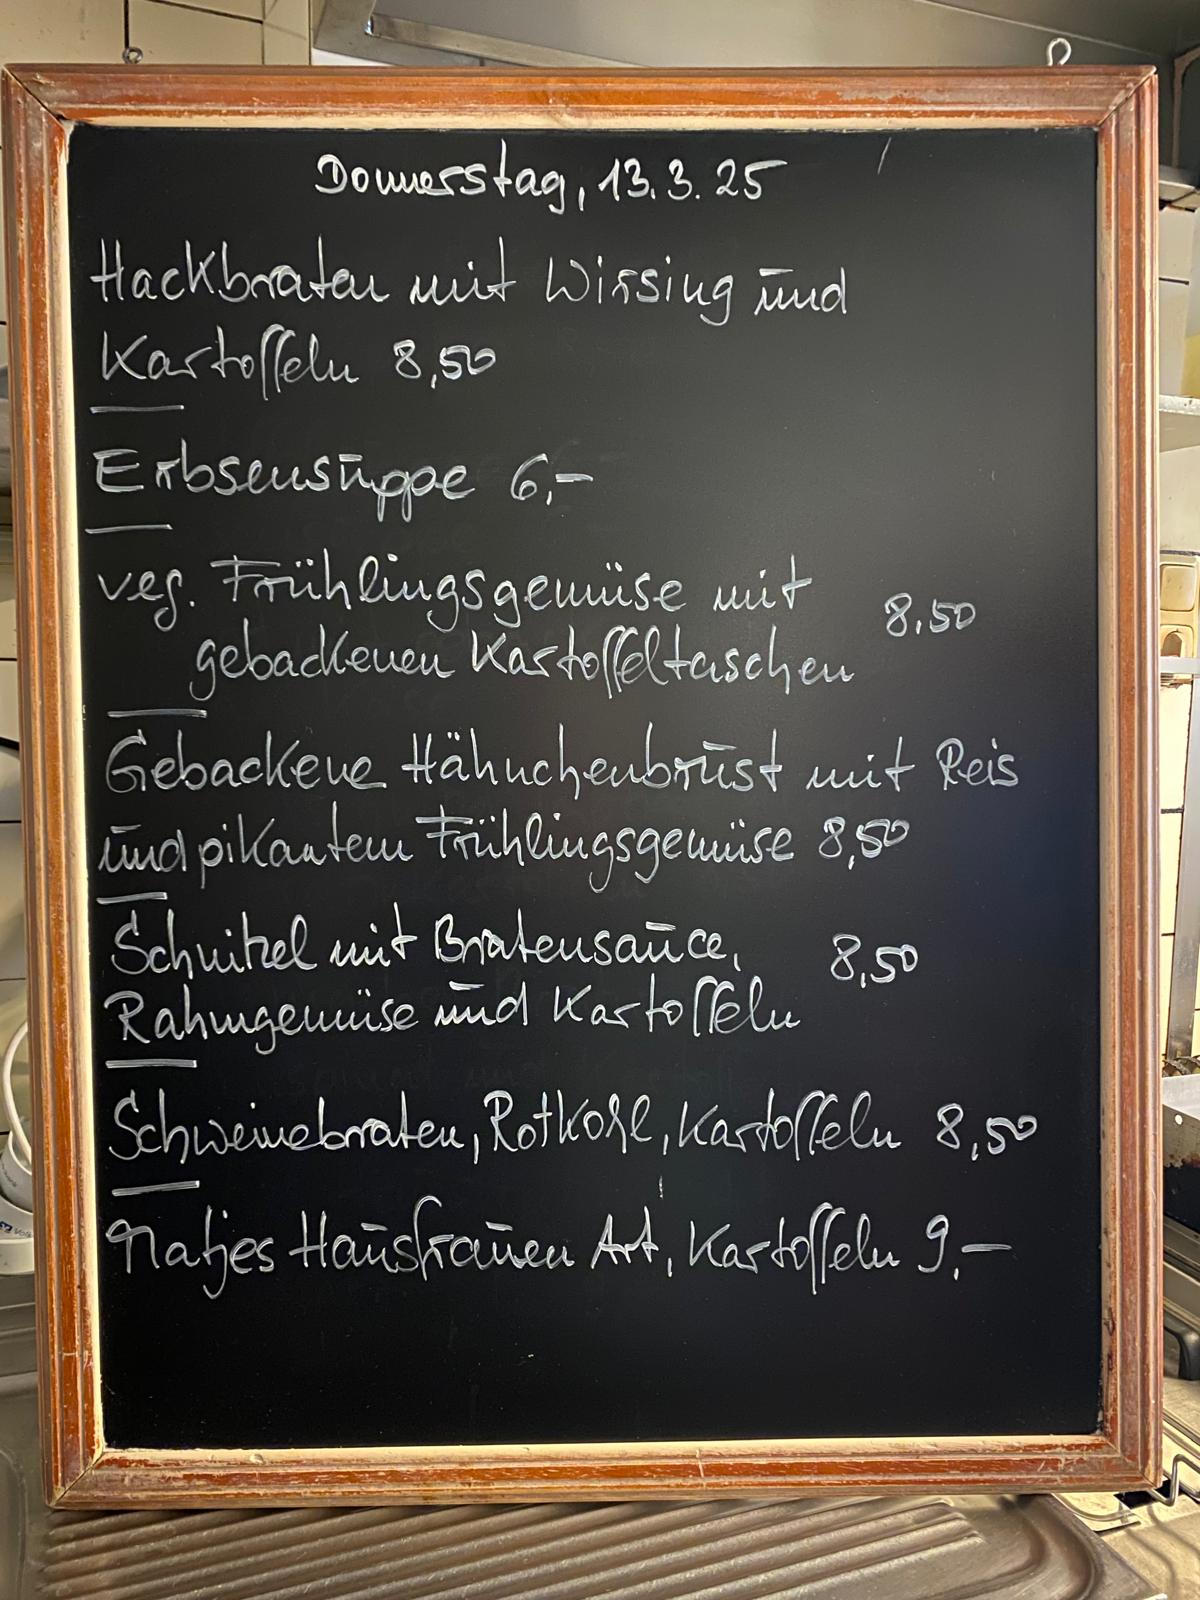 Donnerstag, 13.3.25
Hackbraten mit Wirsing und
Kartoffeln 8,50
Erbsensuppe 6,-
veg. Frühlingsgemüse mit
8.50
gebackenen Kartoffeltaschen
Gebackene Hähnchenbrust mit Reis
und pikantem Frühlingsgemüse 8,50
Schnitzel mit Bratensauce, 8,50
Rahmgemüse und Kartoffeln
Schweinebraten, Rotkohl, Kartoffeln 8,50
Matjes Hausfrauen Art, Kartoffeln 9,-